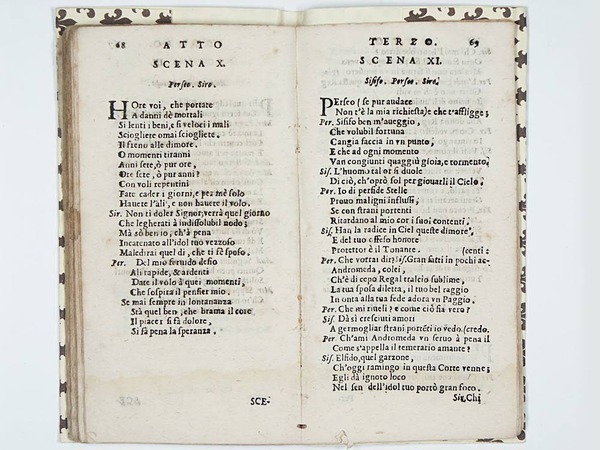 68 ATTO
SCENA X.
Perseo. Siro.
HOre voi, che portate
A danni de mortali
Si lenti i beni, e si veloci i mali
Sciogliete omai sciogliete.
Il freno alle dimore.
O momenti tiranni
Anni sete, ò pur ore,
Ore sete, ò pur anni?
Con voli repentini
Fate cader i giorni, e per me solo
Hauete l'ali, e non hauete il volo.
Sir. Non ti doler Signor, verrà quel giorno
Che legherati à indissolubil nodo;
Mà sò ben io, ch'à pena
Incatenato all'idol tuo vezzoso
Maledirai quel dì, che ti fè sposo.
Per. Del mio feruido desio
Ali rapide, & ardenti
Date il volo à quei momenti,
Che sospira il pensier mio.
Se mai sempre in lontananza
Stà quel ben, che brama il core
Il piacer si fà dolore,
Si fà pena la speranza.
SCE-
TERZO. 69
SCENA XI.
Sififo. Perseo. Siro.
PErseo (se pur audace
Non t'è la mia richiesta) e che t'affligge;
Per. Sififo ben m'aueggio,
Che volubil fortuna
Cangia faccia in vn punto,
E che ad ogni momento
Van congiunti quaggiù gioia, e tormento,
Sif. L'huomo tal or si duole
Di ciò, ch'oprò sol per giouarli il Cielo.
Per. Io di perfide Stelle
Prouo maligni influssi,
Se con strani portenti
Ritardano al mio cor i suoi contenti.
Sif. Han la radice in Ciel queste dimore,
E del tuo offeso honore
Protettor è il Tonante. (centi:
Per. Che vorrai dir? Sif. Gran fatti in pochi ac-
Andromeda, colei,
Ch'è di cepo Regal tralcio sublime,
La tua sposa diletta, il tuo bel raggio
In onta alla tua fede adora vn Paggio.
Per. Che mi riueli? e come ciò fia vero?
Sif. Dà sì cresciuti amori
A germogliar strani portéti io vedo. (credo.
Per. Ch'ami Andromeda vn seruo à pena il
Come s'appella il temerario amante?
Sif. Elfido, quel garzone,
Ch'oggi ramingo in questa Corte venne;
Egli dà ignoto loco
Nel sen dell'idol tuo portò gran foco.
Sir. Chi